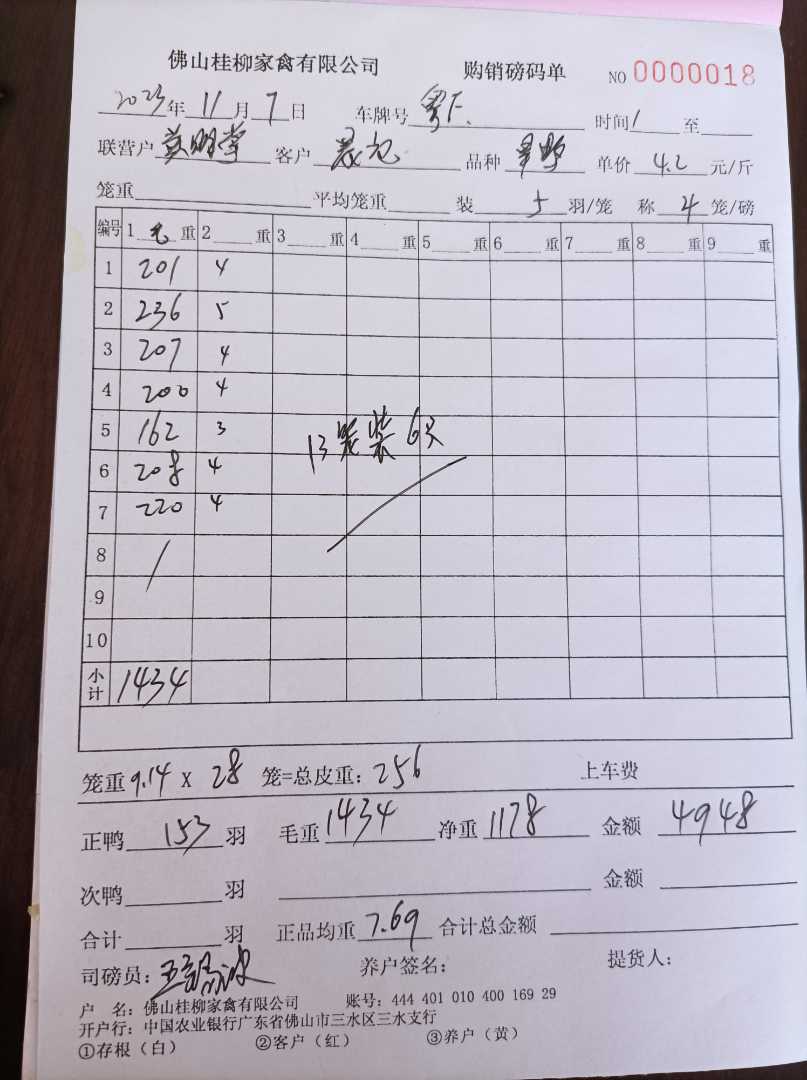 佛山桂柳家禽有限公司 购销磅码单 NO 0000018
2023年11月7日 车牌号 粤F. 时间 1 至
联营户 黄明堂 客户 品种 单价 4.2 元/斤
笼重 平均笼重 装 5 羽/笼 称 4 笼/磅
编号 1 毛 重 2 重 3 重 4 重 5 重 6 重 7 重 8 重 9 重
1 201 4
2 236 5
3 207 4
4 200 4
5 162 3
13笼装6只
6 208 4
7 220 4
8 /
9
10
小计 1434
笼重 9.14 X 28 笼=总皮重: 256 上车费
正鸭 153 羽 毛重 1434 净重 1178 金额 4948
次鸭 羽 金额
合计 羽 正品均重 7.69 合计总金额
司磅员: 养户签名: 提货人:
户 名: 佛山桂柳家禽有限公司 账号: 444 401 010 400 169 29
开户行: 中国农业银行广东省佛山市三水区三水支行
①存根（白） ②客户（红） ③养户（黄）